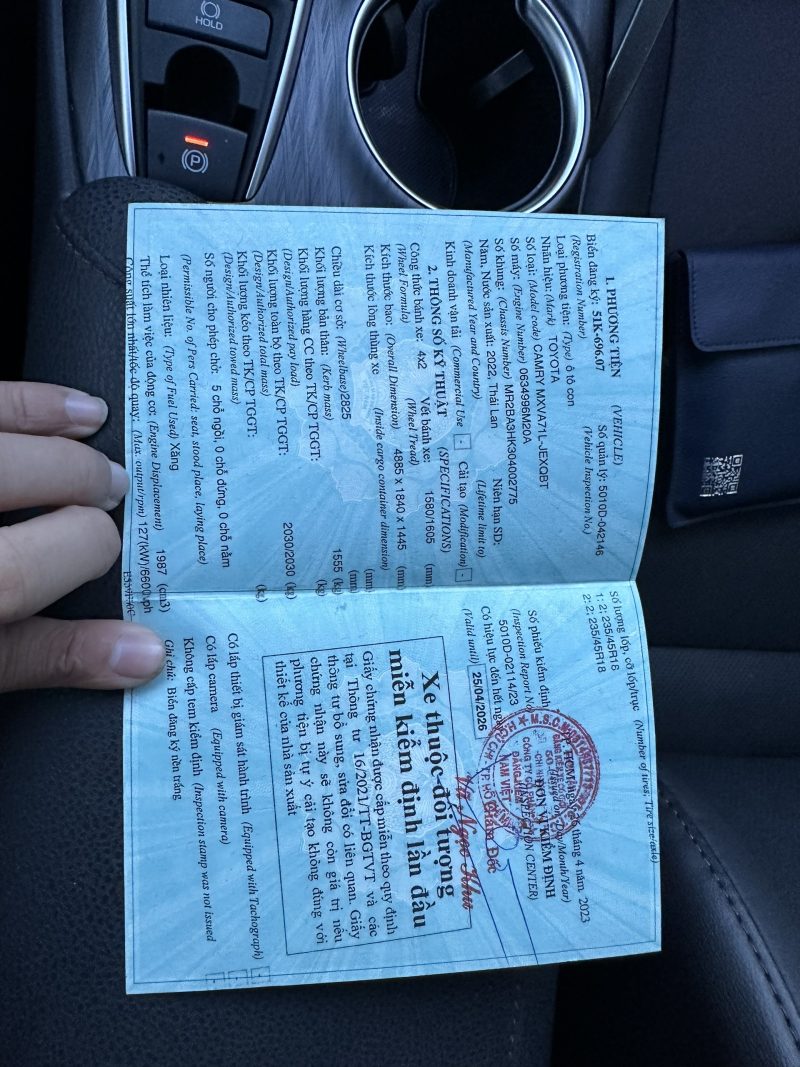 HOLD
P
1. PHƯƠNG TIỆN (VEHICLE)
Biển đăng ký: 51K-696.07 Số quản lý: 5010D-042146
(Registration Number) (Vehicle Inspection No.)
Loại phương tiện: (Type) ô tô con
Nhãn hiệu: (Mark) TOYOTA
Số loại: (Model code) CAMRY MXVA71L-JEXQBT
Số máy: (Engine Number) 0634996M20A
Số khung: (Chassis Number) MR2BA3HK304002775
Năm, Nước sản xuất: 2022, Thái Lan Niên hạn SD:
(Manufactured Year and Country) (Lifetime limit to)
Kinh doanh vận tải (Commercial Use) - Cải tạo (Modification) -
2. THÔNG SỐ KỸ THUẬT (SPECIFICATIONS)
Công thức bánh xe: 4x2 Vết bánh xe: 1580/1605 (mm)
(Wheel Formula) (Wheel Tread)
Kích thước bao: (Overall Dimension) 4885 x 1840 x 1445 (mm)
Kích thước lòng thùng xe (Inside cargo container dimension)
(mm)
Chiều dài cơ sở: (Wheelbase) 2825 (mm)
Khối lượng bản thân: (Kerb mass) 1555 (kg)
Khối lượng hàng CC theo TK/CP TGGT: (kg)
(Design/Authorized pay load)
Khối lượng toàn bộ theo TK/CP TGGT: 2030/2030 (kg)
(Design/Authorized total mass)
Khối lượng kéo theo TK/CP TGGT: (kg)
(Design/Authorized towed mass)
Số người cho phép chở: 5 chỗ ngồi, 0 chỗ đứng, 0 chỗ nằm
(Permissible No. of Pers Carried: seat, stood place, laying place)
Loại nhiên liệu: (Type of Fuel Used) Xăng
Thể tích làm việc của động cơ: (Engine Displacement) 1987 (cm3)
Công suất lớn nhất/tốc độ quay: (Max. output/rpm) 127(kW)/6600vph
Số lượng lốp, cỡ lốp/trục (Number of tires; Tire size/axle)
1: 2; 235/45R18
2: 2; 235/45R18
Số phiếu kiểm định
(Inspection Report No)
5010D-02114/23
Có hiệu lực đến hết ngày
(Valid until) 25/04/2026
tháng 4 năm 2023
ĐƠN VỊ KIỂM ĐỊNH
Vũ Ngọc Khu
Xe thuộc đối tượng
miễn kiểm định lần đầu
Giấy chứng nhận được cấp miễn theo quy định
tại Thông tư 16/2021/TT-BGTVT và các
thông tư bổ sung, sửa đổi có liên quan. Giấy
chứng nhận này sẽ không còn giá trị nếu
phương tiện bị tự ý cải tạo không đúng với
thiết kế của nhà sản xuất
Có lắp thiết bị giám sát hành trình (Equipped with Tachograph) -
Có lắp camera (Equipped with camera)
Không cấp tem kiểm định (Inspection stamp was not issued
Ghi chú: Biển đăng ký nền trắng